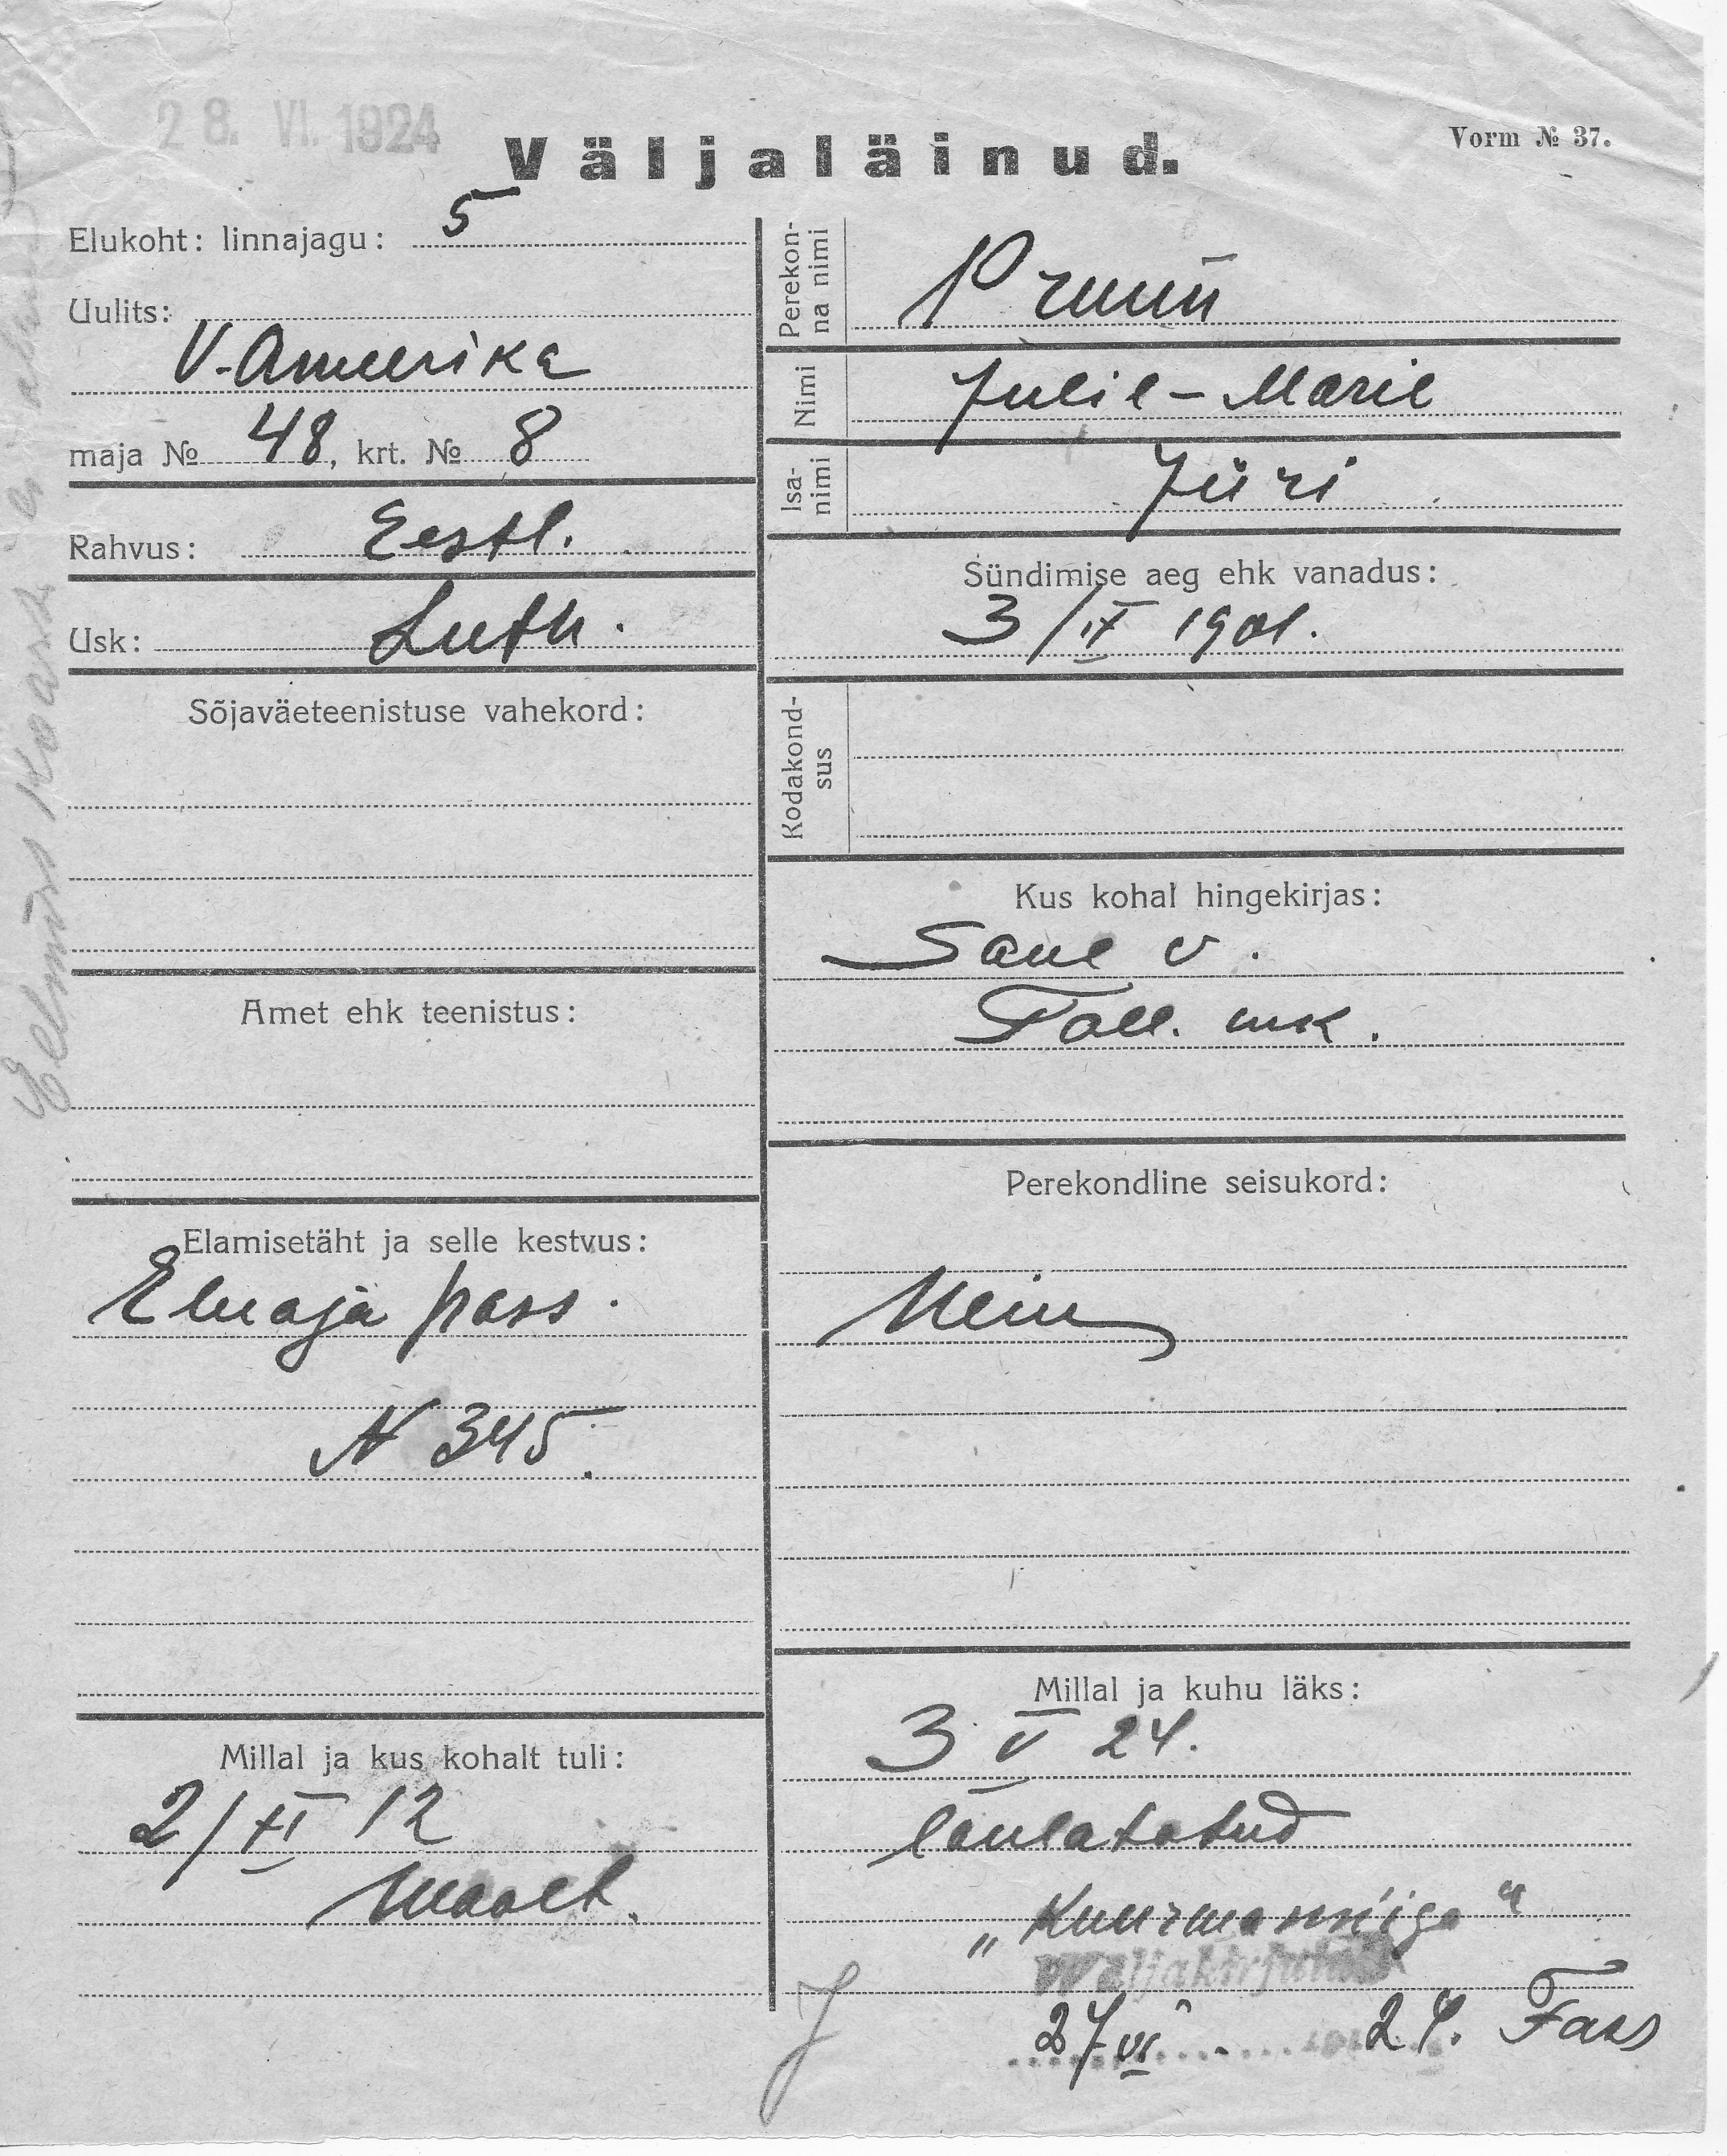 28. VI. 1924
Väljaläinud.
Vorm № 37.
Elukoht: linnajagu: 5
Uulits:
V-Ameerika
maja № 48, krt. № 8
Rahvus: Eestl.
Usk: Luth.
Sõjaväeteenistuse vahekord:
Amet ehk teenistus:
Elamisetäht ja selle kestvus:
Eluaja pass.
N 345.
Millal ja kus kohalt tuli:
2/XI 12
Maalt.
Perekon-
na nimi
Pruun
Nimi
Julie-Marie
Isa-
nimi
Jüri
Sündimise aeg ehk vanadus:
3/IX 1901.
Kodakond-
sus
Kus kohal hingekirjas:
Saue v.
Tall. mk.
Perekondline seisukord:
Neiu
Millal ja kuhu läks:
3 V 24.
laulatatud
„Kuurmanniga“
Väljakirjutud
27 VI 24. Fass